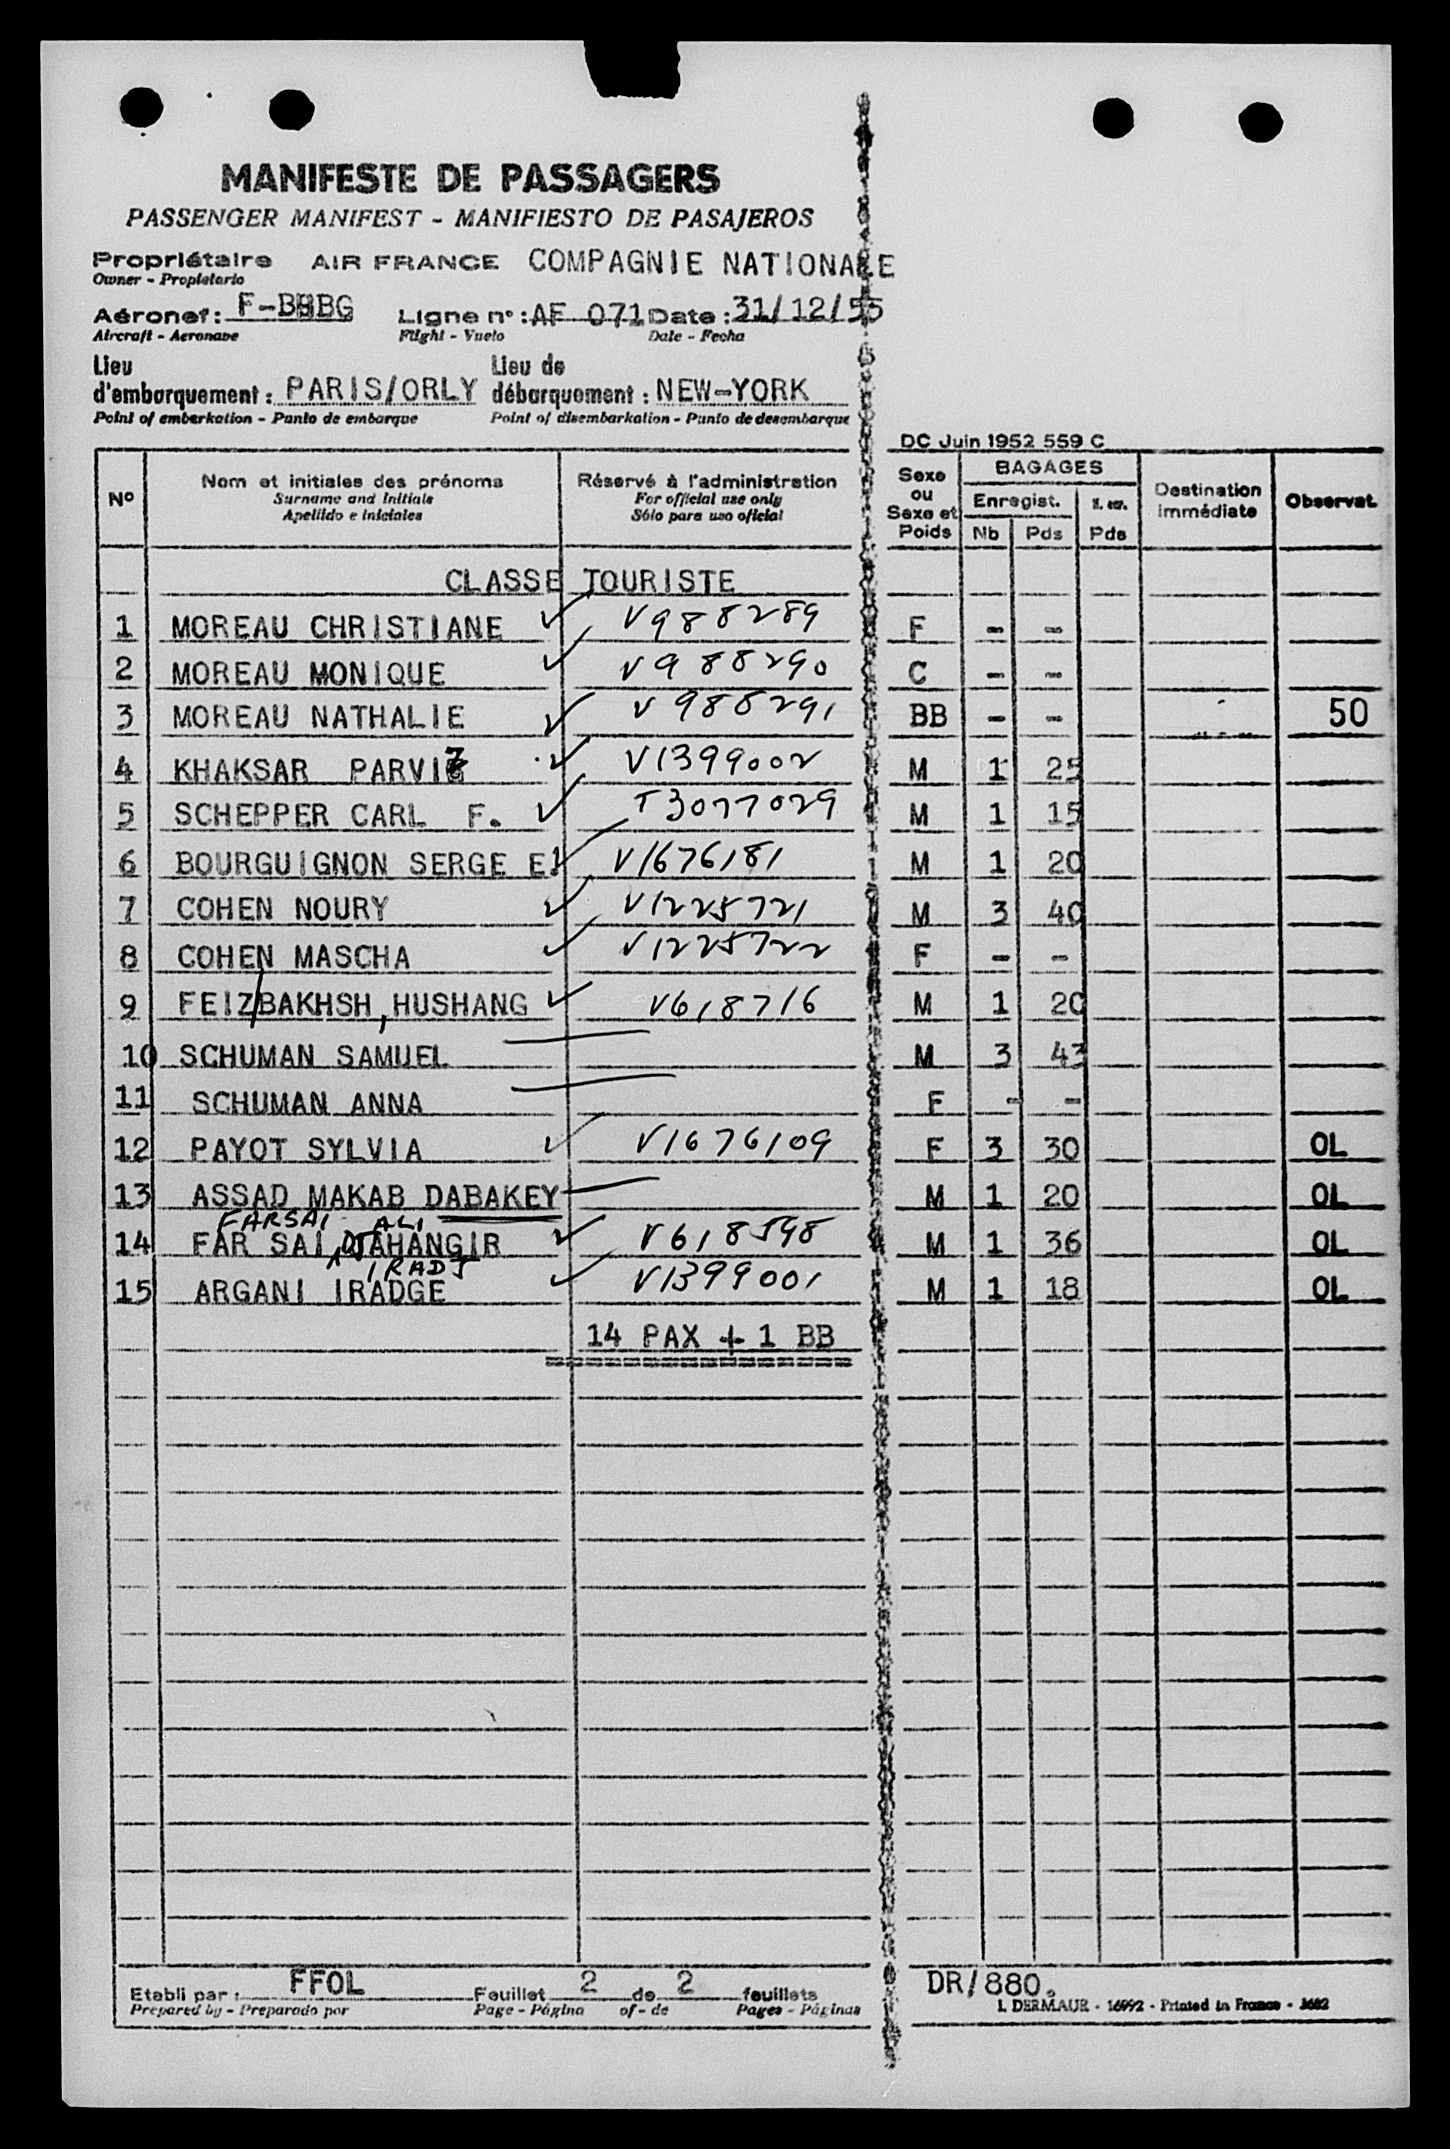 MANIFESTE DE PASSAGERS
PASSENGER MANIFEST - MANIFIESTO DE PASAJEROS
Propriétaire AIR FRANCE COMPAGNIE NATIONALE
Owner - Propietario
Aéronef: F-BHBG Ligne n°: AF 071 Date: 31/12/55
Aircraft - Aeronave Flight - Vuelo Date - Fecha
Lieu d'embarquement: PARIS/ORLY Lieu de débarquement: NEW-YORK
Point of embarkation - Punto de embarque Point of disembarkation - Punto de desembarque
DC Juin 1952 559 C
N° Nom et initiales des prénoms Réservé à l'administration Sexe ou Sexe et Poids BAGAGES Destination immédiate Observat.
Surname and Initials For official use only Enregist.
Apellido e Iniciales Sólo para uso oficial Nb Pds Pds
CLASSE TOURISTE
1 MOREAU CHRISTIANE V988289 F - -
2 MOREAU MONIQUE V988290 C - -
3 MOREAU NATHALIE V988291 BB - - 50
4 KHAKSAR PARVIZ V1399002 M 1 25
5 SCHEPPER CARL F. T3077029 M 1 15
6 BOURGUIGNON SERGE E. V1676181 M 1 20
7 COHEN NOURY V1225721 M 3 40
8 COHEN MASCHA V1225722 F - -
9 FEIZ/BAKHSH, HUSHANG V618716 M 1 20
10 SCHUMAN SAMUEL M 3 43
11 SCHUMAN ANNA F - -
12 PAYOT SYLVIA V1676109 F 3 30 OL
13 ASSAD MAKAB DABAKEY M 1 20 OL
FARSAI ALI
14 FAR SAI DJAHANGIR V618598 M 1 36 OL
IRADJ
15 ARGANI IRADGE V1399001 M 1 18 OL
14 PAX + 1 BB
Etabli par: FFOL Feuillet 2 de 2 feuillets DR/880.
Prepared by - Preparado por Page - Página of - de Pages - Páginas I. DERMAUR - 16992 - Printed in France - 3682